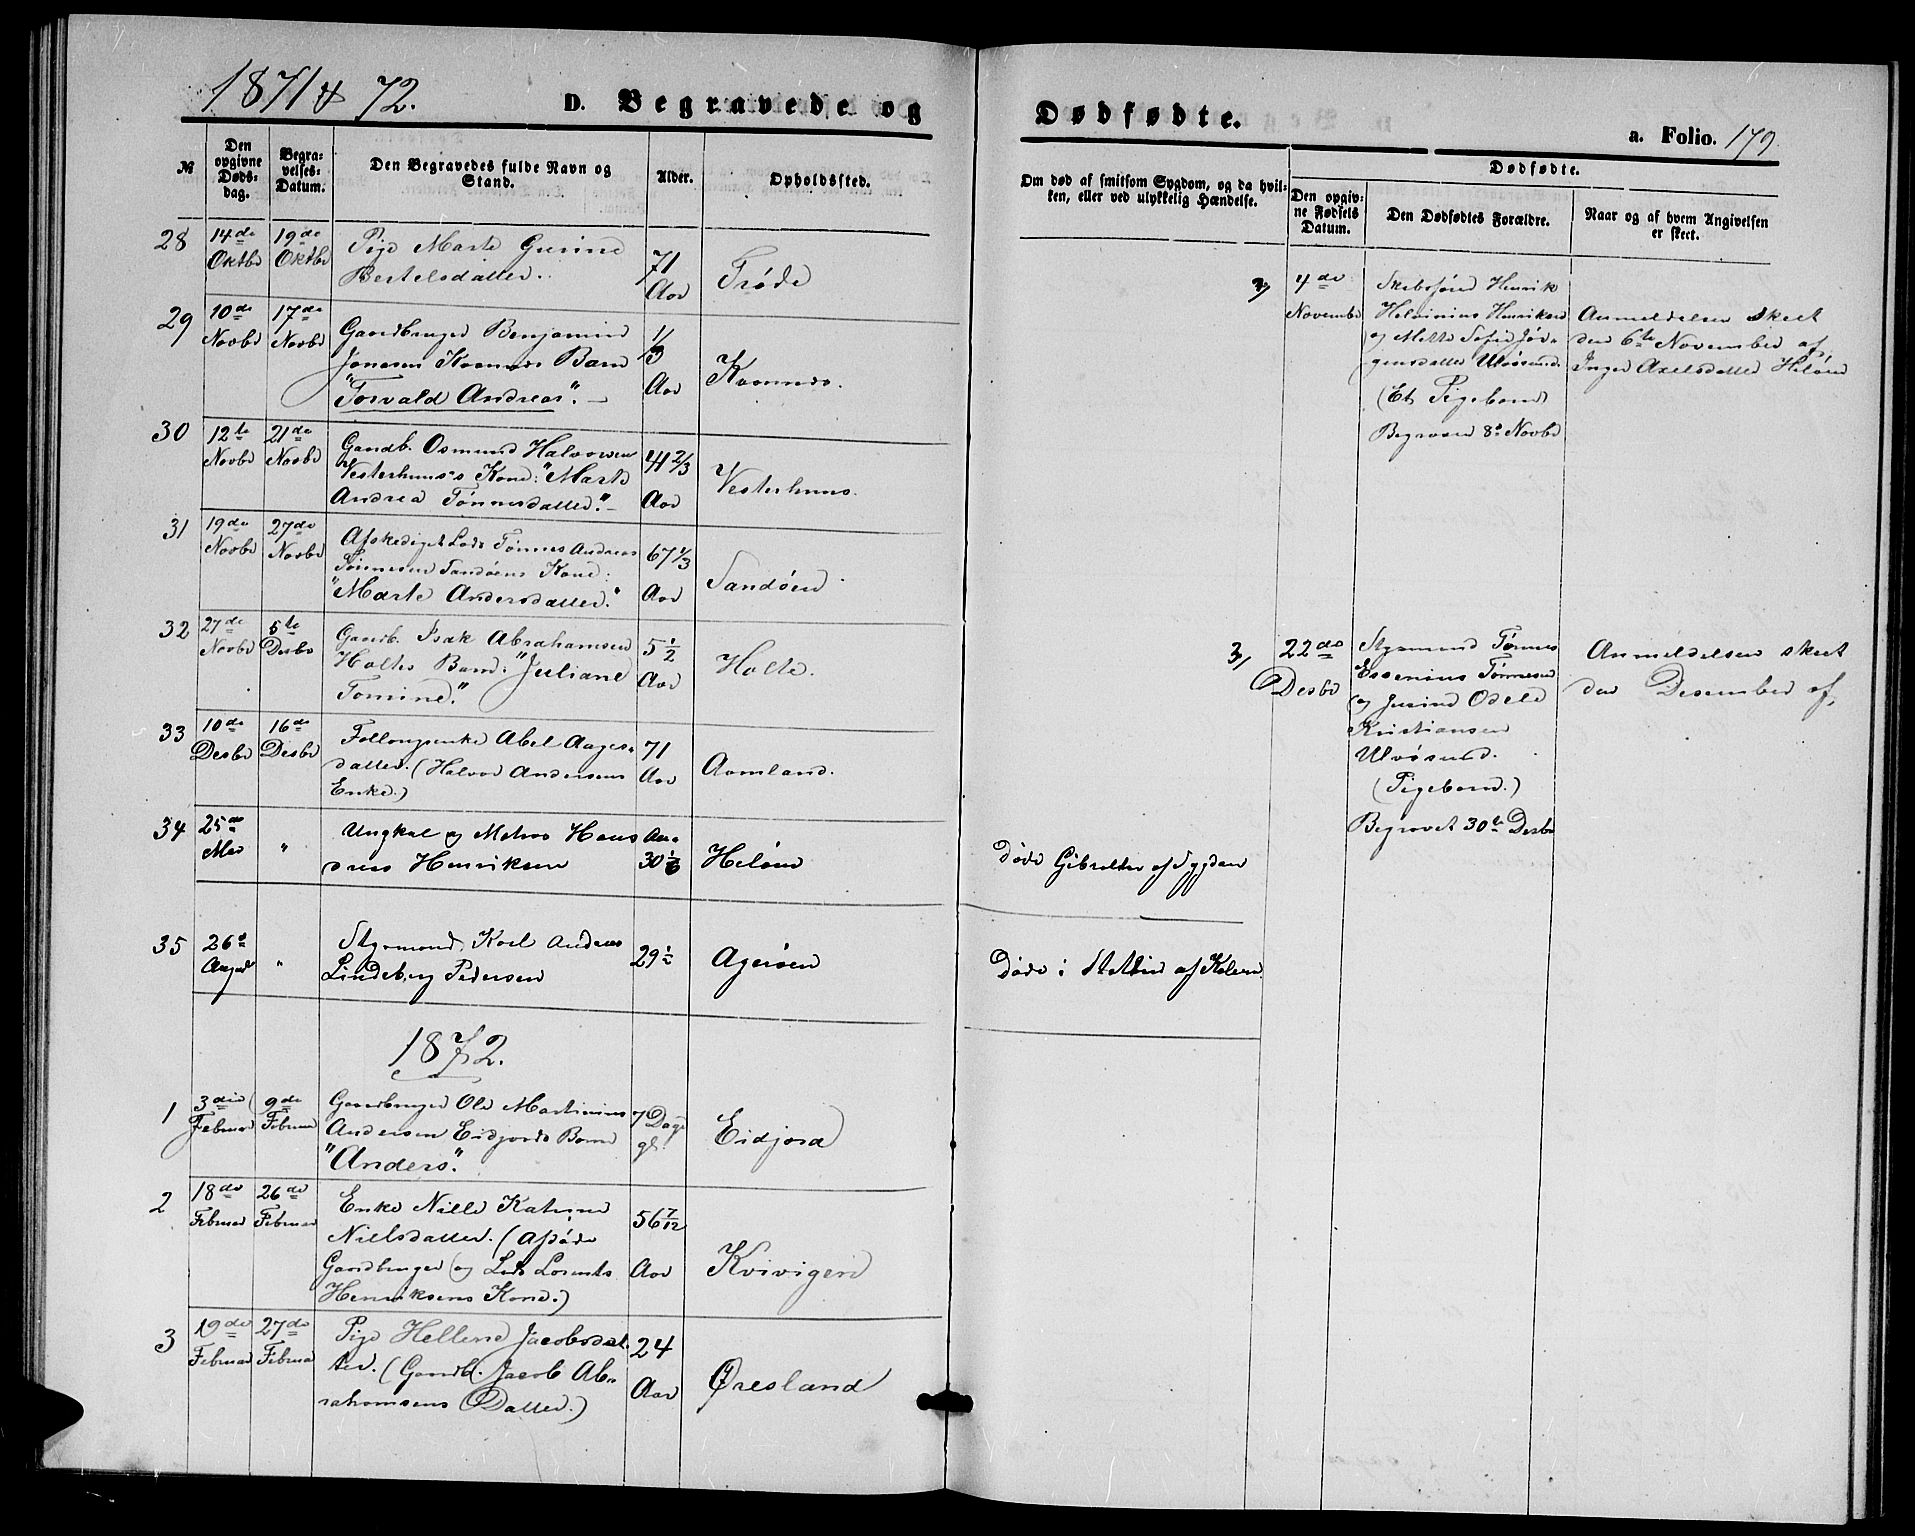 1871 & 72.
D. Begravede og
Dødfødte.
a. Folio. 179
№
Den opgivne Døds-dag.
Begra-velses-Datum.
Den Begravedes fulde Navn og Stand.
Alder.
Opholdssted.
Om død af smitsom Sygdom, og da hvil-
ken, eller ved ulykkelig Hændelse.
Dødfødte.
Den opgiv-ne Fødsels Datum.
Den Dødfødtes Forældre.
Naar og af hvem Angivelsen er skeet.
28 14de Oktbr 19de Oktbr
Pige Marte Gurine
Bertelsdatter.
71 Aar
Trøde
29 10de Novbr 17de Novbr
Gaardbruger Benjamin
Jonasen Kvannes Barn
"Torvald Andreas". –
1/3 Aar
Kvannes.
30 12te Novbr 21de Novbr
Gaardb. Osmund Halvorsen
Vesterhuus's Kone: "Marte
Andrea Tønnesdatter." –
41 2/3 Aar
Vesterhuus.
31 19de Novbr 27de Novbr
Afskediget Lods Tønnes Andreas
Tønnesen Sandøens Kone:
"Marte Andersdatter."
67 1/3 Aar
Sandøen
32 27de Novbr 5te Desbr
Gaardb. Isak Abrahamsen
Holtes Barn: "Juliane
Tomine."
5 1/2 Aar
Holte.
33 10de Desbr 16de Desbr
Føllougsenke Abel Aages-
datter. (Halvor Andersens
Enke.)
71 Aar
Aamland.
34 25de Mai "
Ungkal og Matros Hans
Henriksen
30 1/6
Heløen
Døde Gibralter af Sygdom
35 26de August "
Styrmand Karl Andreas
Lindeberg Pedersen
29 1/2
Agerøen
Døde i Stettin af Kolera
1872.
1 3die Februar 9de Februar
Gaardbruger Ole Martinius
Andersen Eidjords Barn
"Anders".
7 Dage gl.
Eidjord
2 18de Februar 26de Februar
Enke Nille Katrine
Nielsdatter. (Afdøde
Gaardbruger og Lods Lorents
Henriksens Kone.)
56 7/12 Aar
Kvivigen
3 19de Februar 27de Februar
Pige Hellene Jacobsdat-
ter. (Gaardb. Jacob Ab-
rahamsens Datter.)
24 Aar
Øresland
2, 4de Novembr
Skibsfører Henrik
Helvinius Henriksen
og Mette Sofie Jør-
gensdatter Ulvøsund.
(Et Pigebarn)
Begraven 8de Novbr
Anmeldelsen skeet
den 6te November af
Inger Axelsdatter Heløen
3, 22de Desbr
Styrmand Tønnes
Essenius Tønnesen
og Jusine Odele
Kristiansen
Ulvøsund.
(Pigebarn.)
Begravet 30te Desbr
Anmeldelsen skeet
den Desember af,